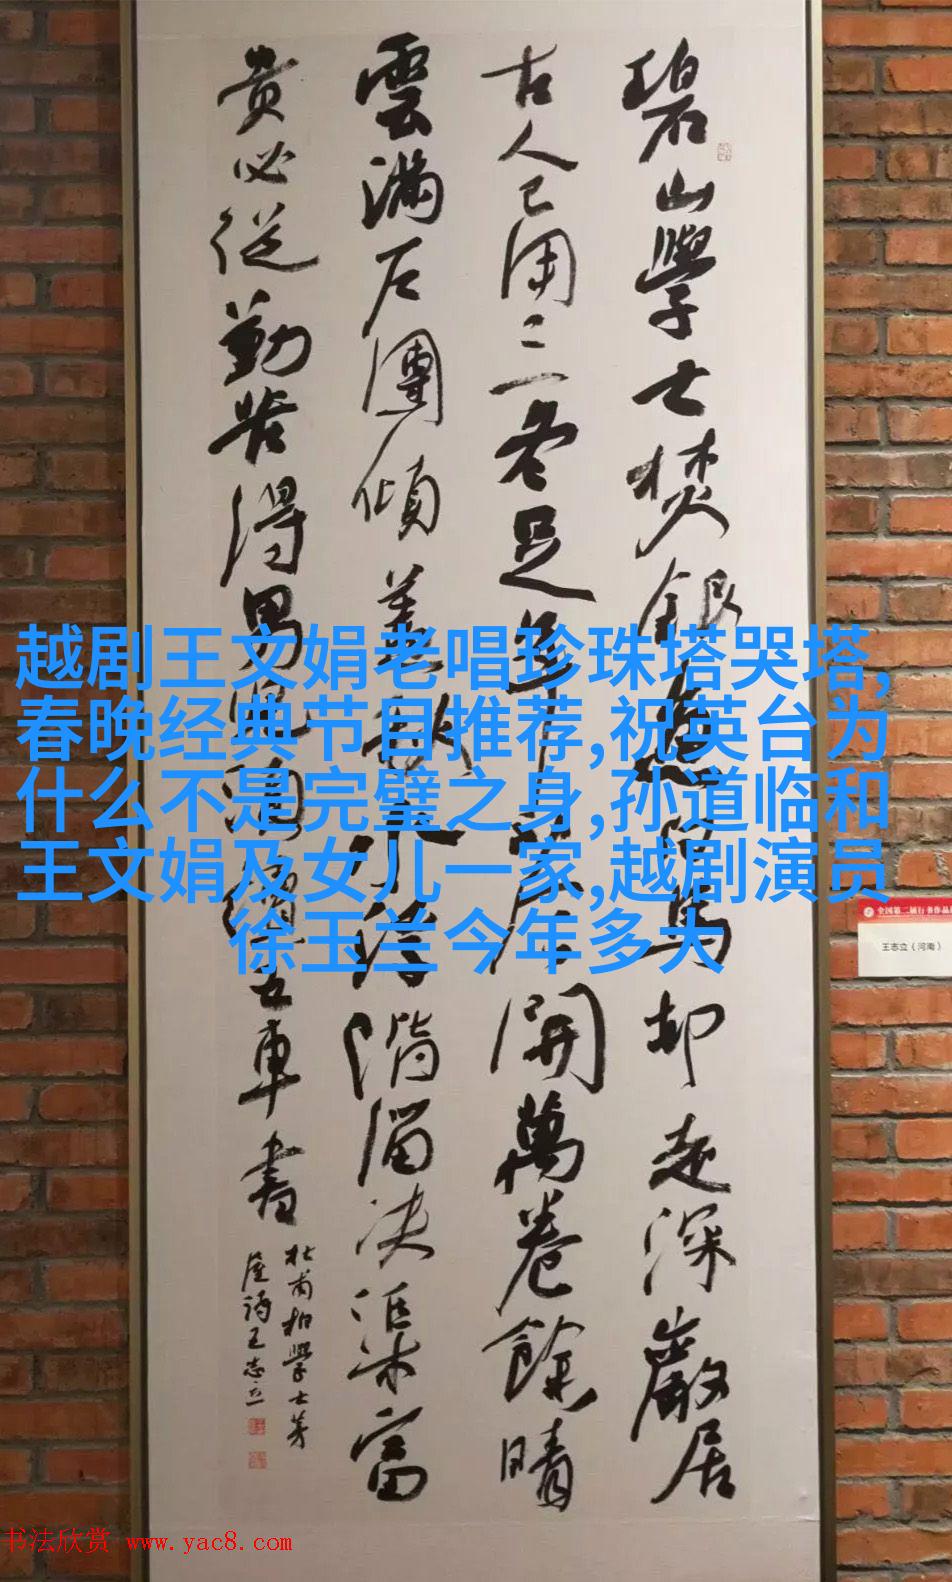 碧山學士焚銀魚白馬却走深巖居
古人已用三冬足年少今開萬卷餘晴
雲滿戶團傾蓋秋水浮階溜决渠富
貴必從勤苦得男兒須讀五車書
杜甫柏學士茅
屋詩王志立
越剧王文娟老唱珍珠塔哭塔,
春晚经典节目推荐,祝英台为
什么不是完璧之身,孙道临和
王文娟及女儿一家,越剧演员
徐玉兰今年多大
全国第二届行书作品
王志立(河南)
书法欣赏 www.yac8.com